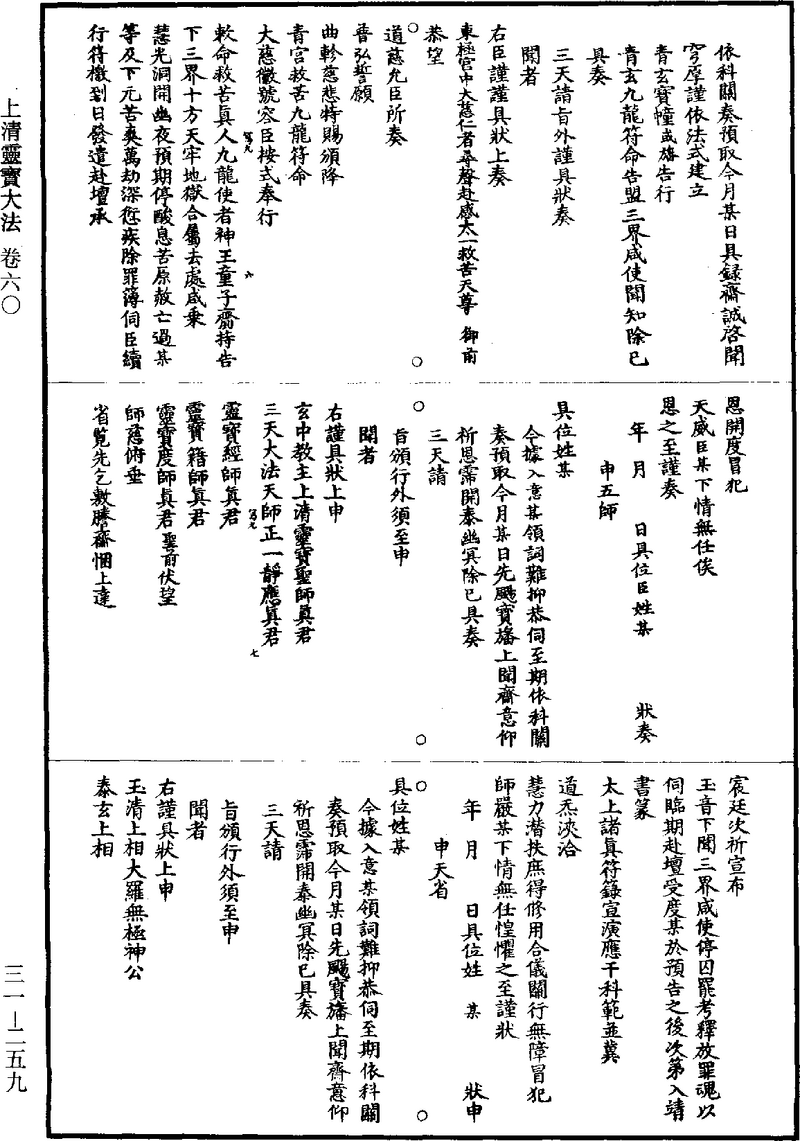 依科關奏預取今月某日具錄齋誠啓聞
穹厚謹依法式建立
青玄寶幢或旛告行
青玄九龍符命告盟三界咸使聞知除已
具奏
三天請旨外謹具狀奏
聞者
右臣謹謹具狀上奏
東極宮中大慈仁者尋聲赴感太一救苦天尊 御前
恭望
道慈允臣所奏
普弘誓願
曲軫慈悲特賜頒降
青宮救苦九龍符命
大慈徽號容臣按式奉行
敕命救苦真人九龍使者神王童子齎持告
下三界十方天牢地獄合屬去處咸乘
慧光洞開幽夜預期停酸息苦原赦亡過某
等及下元苦爽萬劫深愆疾除罪簿伺臣續
行符檄到日發遣赴壇承
恩開度冒犯
天威臣某下情無任俟
恩之至謹奏
年 月 日具位臣姓某 狀奏
申五師
具位姓某
今據入意某領詞難抑恭伺至期依科關
奏預取今月某日先颺寶旛上聞齋意仰
祈恩霈開泰幽冥除已具奏
三天請
旨頒行外須至申
聞者
右謹具狀上申
玄中教主上清靈寶聖師真君
三天大法天師正一靜應真君
靈寶經師真君
靈寶籍師真君
靈寶度師真君聖前伏望
師慈俯垂
省覧先乞敷騰齋悃上達
宸廷次祈宣布
玉音下聞三界咸使停囚罷考釋放罪魂以
伺臨期赴壇受度某於預告之後次第入靖
書篆
太上諸真符籙宣演應干科範並冀
道炁浹洽
慧力潛扶庶得修用合儀關行無障冒犯
師嚴某下情無任惶懼之至謹狀
年 月 日具位姓 某 狀申
申天省
具位姓某
今據入意某領詞難抑恭伺至期依科關
奏預取今月某日先颺寶旛上聞齋意仰
祈恩霈開泰幽冥除已具奏
三天請
旨頒行外須至申
聞者
右謹具狀上申
玉清上相大羅無極神公
泰玄上相
上清靈寶大法 卷六〇
三一—二五九